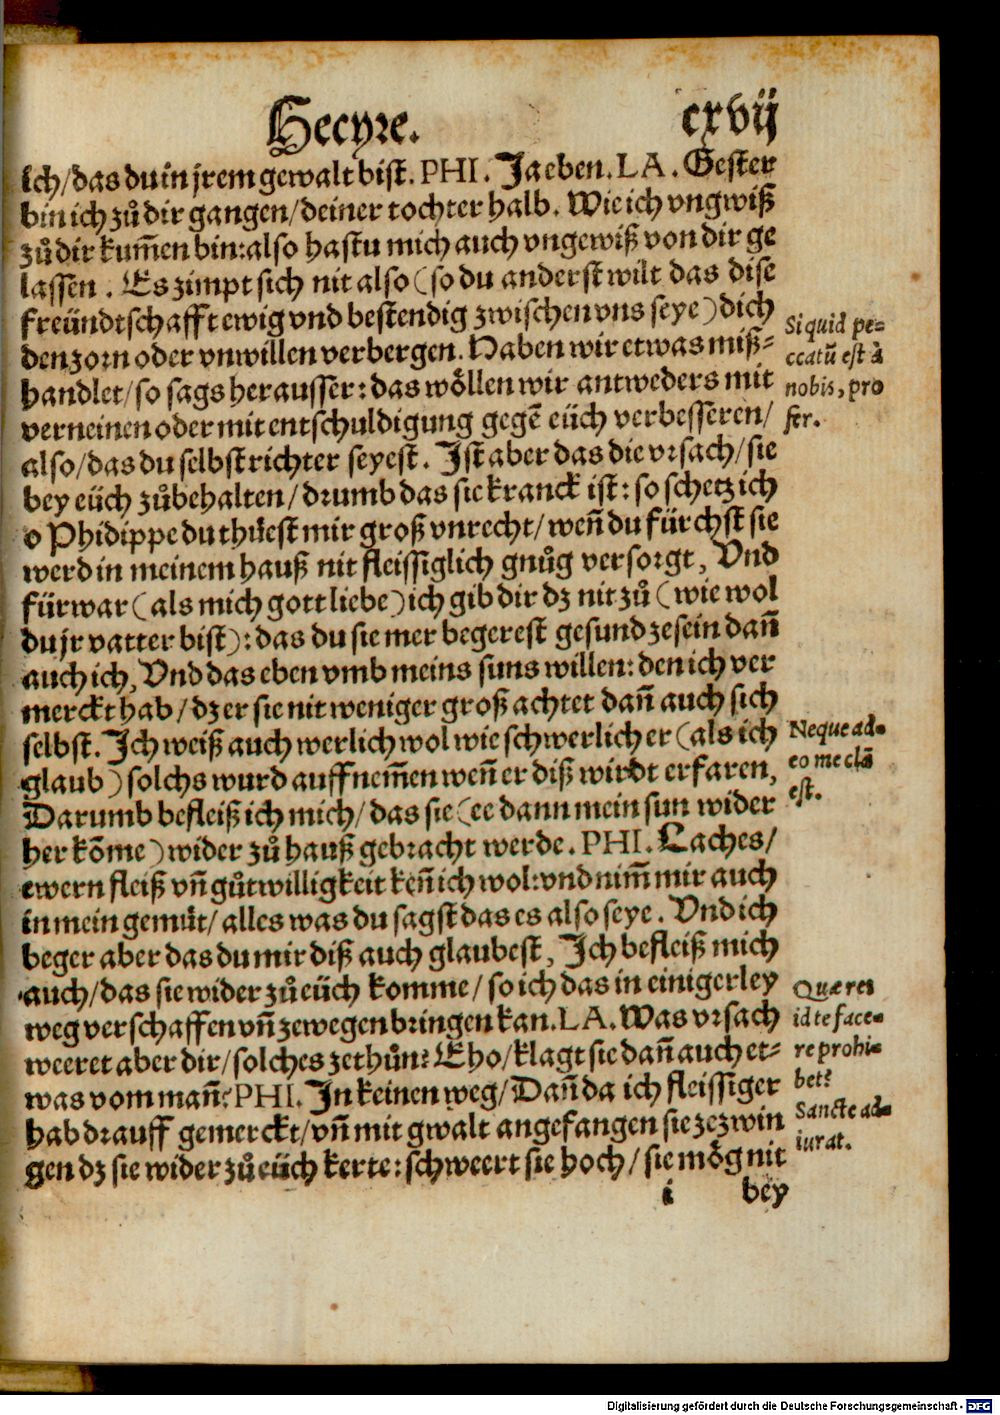 Hecyre. cxvij
ich/das du in jrem gewalt bist. PHI. Ja eben. LA. Gester
bin ich zů dir gangen/deiner tochter halb. Wie ich vngwiß
zů dir kum̃en bin:also hastu mich auch vngewiß von dir ge
lassen. Es zimpt sich nit also (so du anderst wilt das dise
freündtschafft ewig vnd bestendig zwischen vns seye) dich
den zorn oder vnwillen verbergen. Haben wir etwas miß-
handlet/so sags herausser: das wöllen wir antweders mit
verneinen oder mit entschuldigung gegẽ eüch verbesseren/
also/das du selbst richter seyest. Ist aber das die vrsach/sie
bey eüch zůbehalten/drumb das sie kranck ist: so schetz ich
o Phidippe du thůest mir groß vnrecht/weñ du fürchst sie
werd in meinem hauß nit fleissiglich gnůg versorgt, Vnd
fürwar (als mich gott liebe) ich gib dir dz nit zů (wie wol
du jr vatter bist): das du sie mer begerest gesund ze sein dañ
auch ich, Vnd das eben vmb meins suns willen: den ich ver
merckt hab/dz er sie nit weniger groß achtet dañ auch sich
selbst. Ich weiß auch werlich wol wie schwerlich er (als ich
glaub) solchs wurd auffnem̃en weñ er diß wirdt erfaren,
Darumb befleiß ich mich/das sie (ee dann mein sun wider
her kõme) wider zů hauß gebracht werde. PHI. Laches/
ewern fleiß vñ gůtwilligkeit keñ ich wol:vnd nim̃ mir auch
in mein gemůt/alles was du sagst das es also seye. Vnd ich
beger aber das du mir diß auch glaubest, Ich befleiß mich
auch/das sie wider zů eüch komme/so ich das in einigerley
weg verschaffen vñ zewegen bringen kan. LA. Was vrsach
weeret aber dir/solches zethůn? Eho/klagt sie dañ auch et-
was vom mañ? PHI. In keinen weg/Dañ da ich fleissiger
hab drauff gemerckt/vñ mit gwalt angefangen sie ze zwin
gen dz sie wider zů eüch kerte: schweert sie hoch/sie mög nit
i bey
Si quid pe-
ccatũ est à
nobis, pro
fer.
Neque ad-
eo me clã
est.
Quæ res
id te face-
re prohi-
bet?
Sancte ad-
iurat.
Digitalisierung gefördert durch die Deutsche Forschungsgemeinschaft - DFG